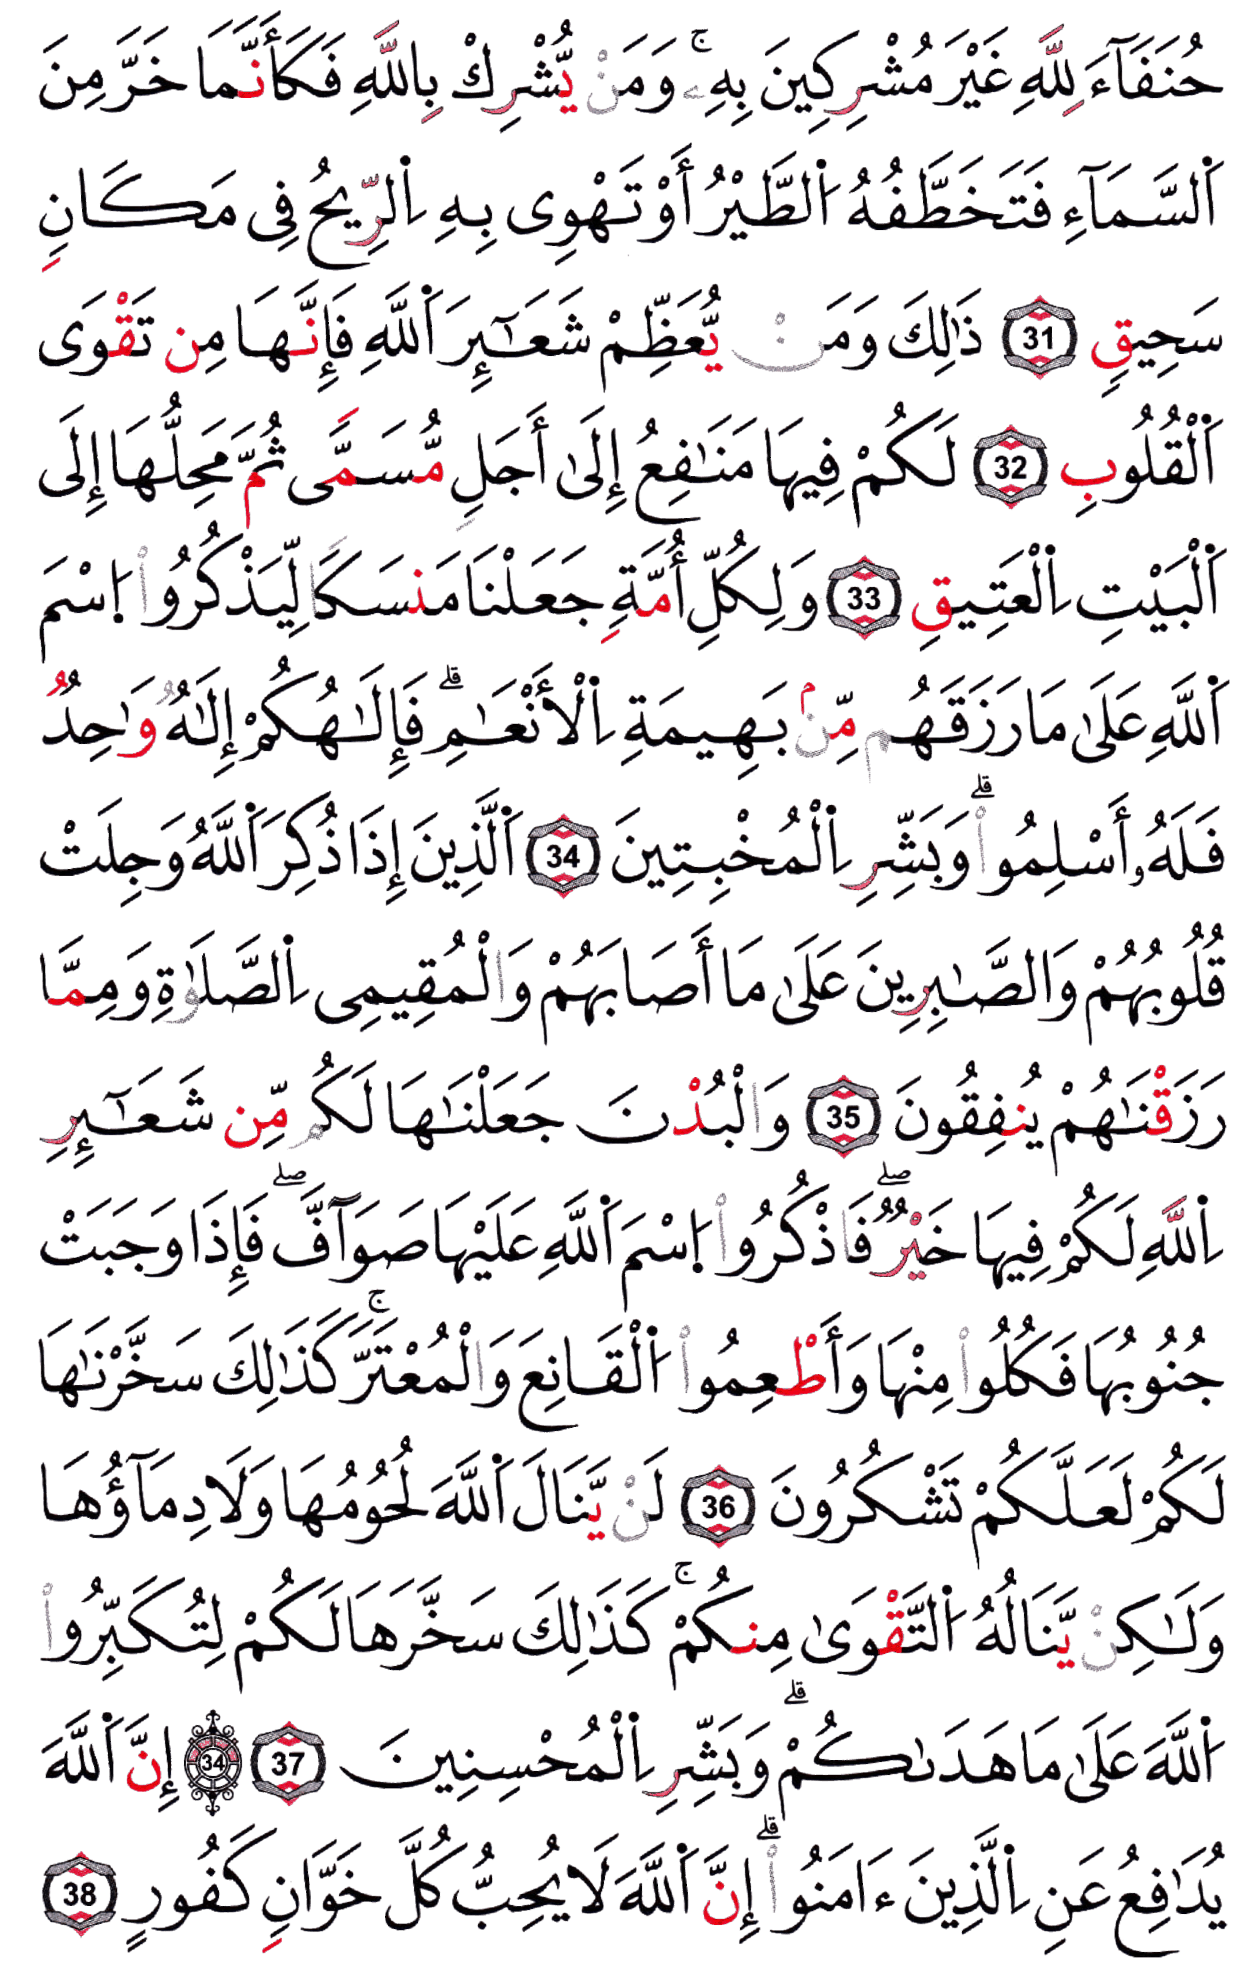 حُنَفَآءَ لِلَّهِ غَيْرَ مُشْرِكِينَ بِهِۦۚ وَمَنْ يُّشْرِكْ بِاللَّهِ فَكَأَنَّمَا خَرَّ مِنَ
اَ۬لسَّمَآءِ فَتَخَطَّفُهُ اُ۬لطَّيْرُ أَوْ تَهْوِى بِهِ اِ۬لرِّيحُ فِى مَكَانٍ
سَحِيقٍ 31 ذَٰلِكَ وَمَنْ يُّعَظِّمْ شَعَٰٓئِرَ اَ۬للَّهِ فَإِنَّهَا مِن تَقْوَى
اَ۬لْقُلُوبِ 32 لَكُمْ فِيهَا مَنَٰفِعُ إِلَىٰ أَجَلٍ مُّسَمًّى ثُمَّ مَحِلُّهَا إِلَى
اَ۬لْبَيْتِ اِ۬لْعَتِيقِ 33 وَلِكُلِّ أُمَّةٍ جَعَلْنَا مَنسَكًا لِّيَذْكُرُوا۟ اُ۪سْمَ
اَ۬للَّهِ عَلَىٰ مَا رَزَقَهُم مِّنۢ بَهِيمَةِ اِ۬لْأَنْعَٰمِۗ فَإِلَٰهُكُمْ إِلَٰهٌ وَٰحِدٌ
فَلَهُۥ أَسْلِمُوا۟ۗ وَبَشِّرِ اِ۬لْمُخْبِتِينَ 34 اَ۬لَّذِينَ إِذَا ذُكِرَ اَ۬للَّهُ وَجِلَتْ
قُلُوبُهُمْ وَالصَّٰبِرِينَ عَلَىٰ مَا أَصَابَهُمْ وَالْمُقِيمِى اِ۬لصَّلَوٰةِ وَمِمَّا
رَزَقْنَٰهُمْ يُنفِقُونَ 35 وَالْبُدْنَ جَعَلْنَٰهَا لَكُم مِّن شَعَٰٓئِرِ
اِ۬للَّهِ لَكُمْ فِيهَا خَيْرٌۖ فَاذْكُرُوا۟ اُ۪سْمَ اَ۬للَّهِ عَلَيْهَا صَوَآفَّۖ فَإِذَا وَجَبَتْ
جُنُوبُهَا فَكُلُوا۟ مِنْهَا وَأَطْعِمُوا۟ اُ۬لْقَانِعَ وَالْمُعْتَرَّۚ كَذَٰلِكَ سَخَّرْنَٰهَا
لَكُمْ لَعَلَّكُمْ تَشْكُرُونَ 36 لَنْ يَّنَالَ اَ۬للَّهَ لُحُومُهَا وَلَا دِمَآؤُهَا
وَلَٰكِنْ يَّنَالُهُ اُ۬لتَّقْوَىٰ مِنكُمْۚ كَذَٰلِكَ سَخَّرَهَا لَكُمْ لِتُكَبِّرُوا۟
اُ۬للَّهَ عَلَىٰ مَا هَدَىٰكُمْۗ وَبَشِّرِ اِ۬لْمُحْسِنِينَ 37 34 إِنَّ اَ۬للَّهَ
يُدَٰفِعُ عَنِ اِ۬لَّذِينَ ءَامَنُوا۟ۗ إِنَّ اَ۬للَّهَ لَا يُحِبُّ كُلَّ خَوَّانٍ كَفُورٍ 38